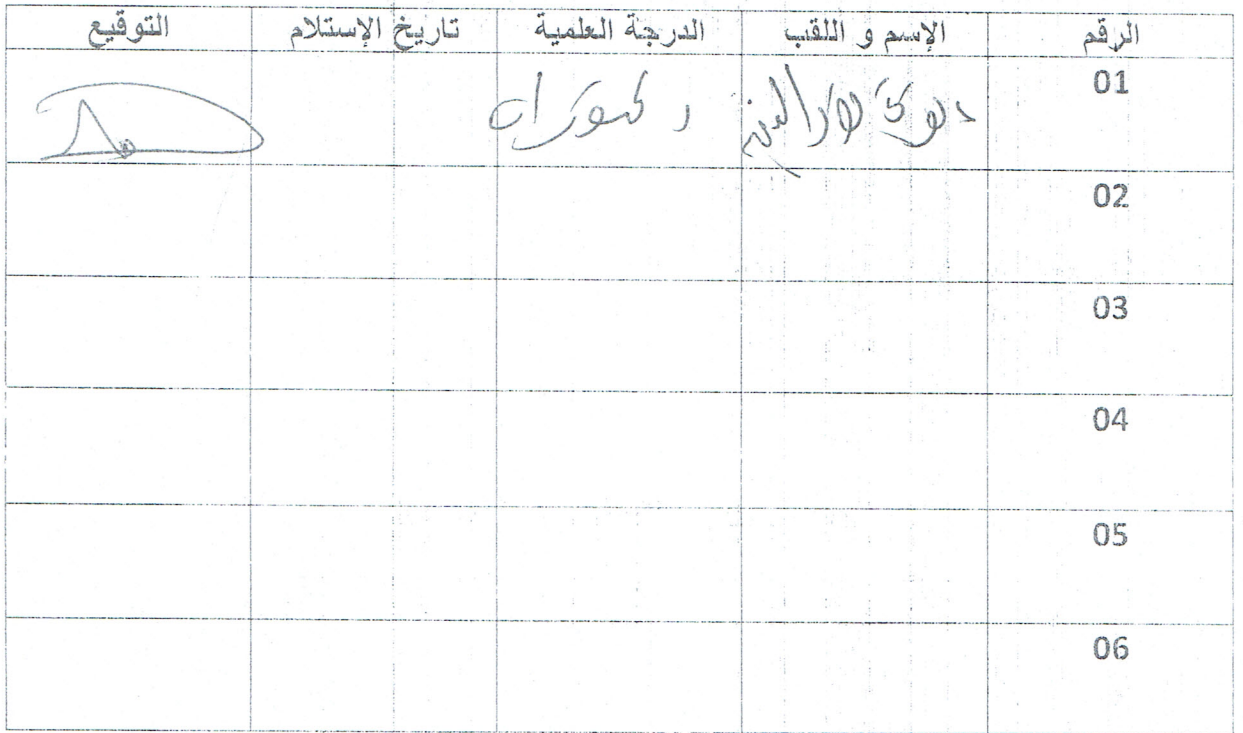 الرقم الإسم و اللقب الدرجة العلمية تاريخ الإستلام التوقيع
01 نور الدين دكتوراه
02
03
04
05
06